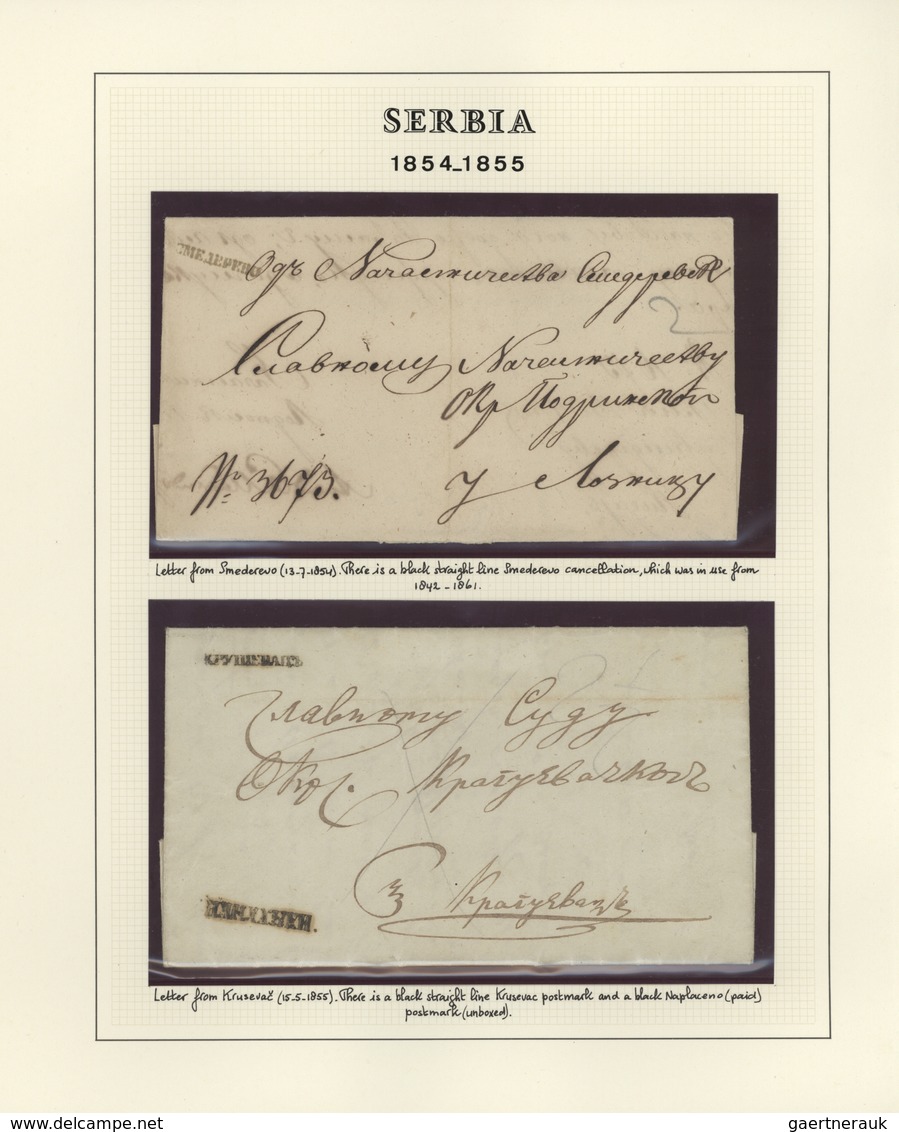 SERBIA
1854-1855
СМЕДЕРЕВО
Одъ Начастничества Смедеревск
2
Славному Начастничеству
Окр Подринской
№ 3673.
у Лозницу
Letter from Smederevo (13-7-1854). There is a black straight line Smederevo cancellation, which was in use from
1842 - 1861.
КРУШЕВАЦЪ
Главному Суду
Окр. Крагуевачкомъ
у Крагуевацъ
Letter from Krusevač (15-5-1855). There is a black straight line Krusevac postmark and a black Naplaceno (paid)
postmark (unboxed).
www.delcampe.net
gaertnerauk